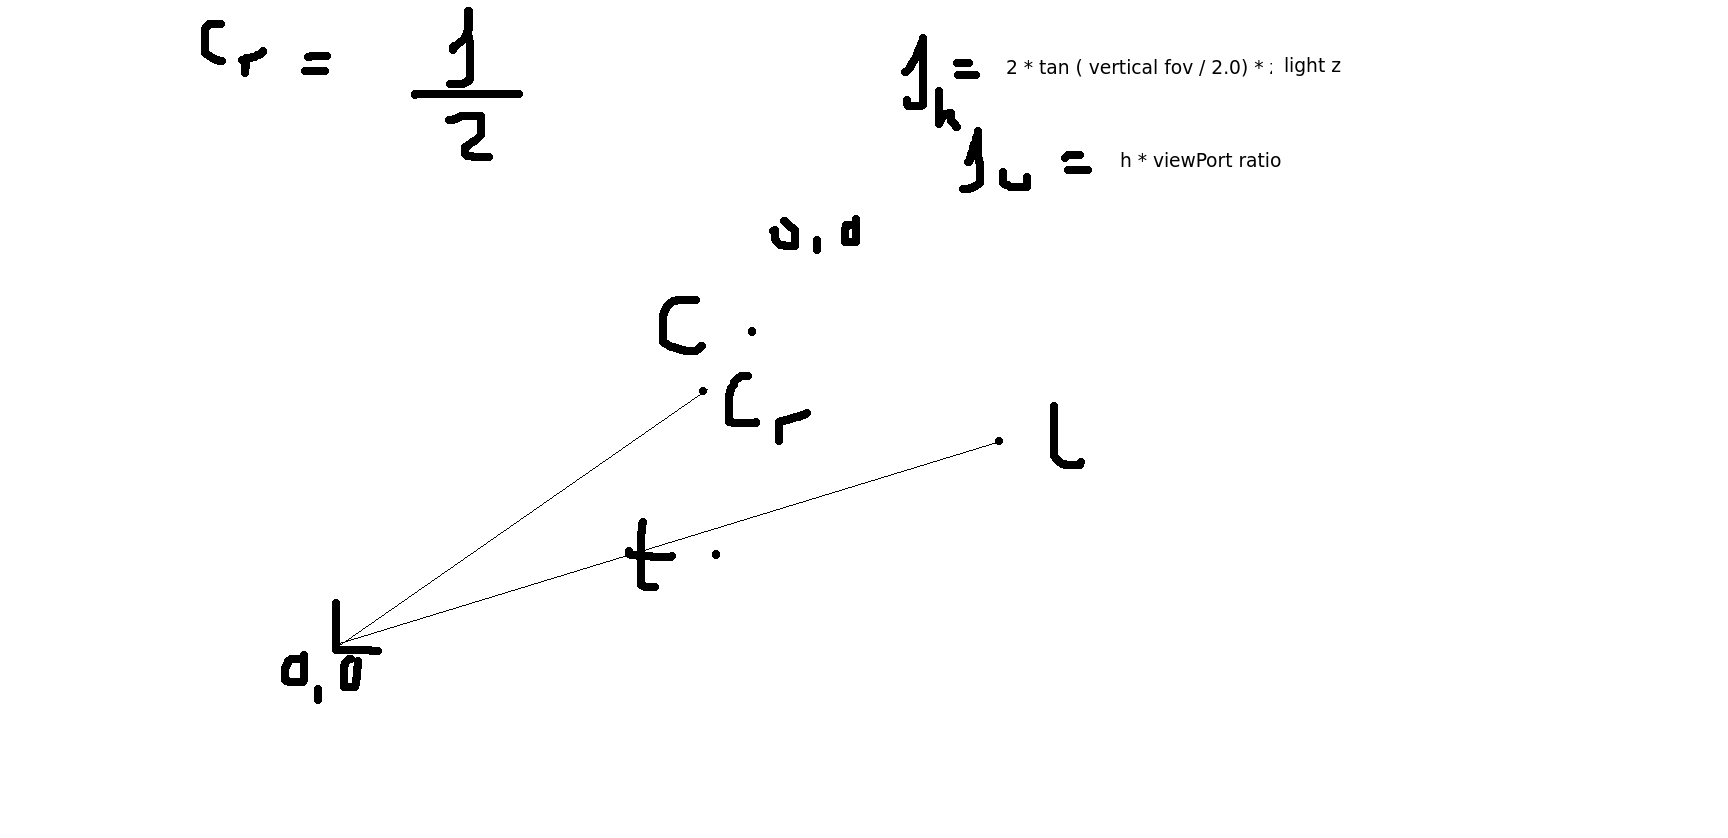 Cr = 1
2
1h = 2 * tan ( vertical fov / 2.0) * ; light z
1u = h * viewPort ratio
0,0
C
Cr
l
t
0,0